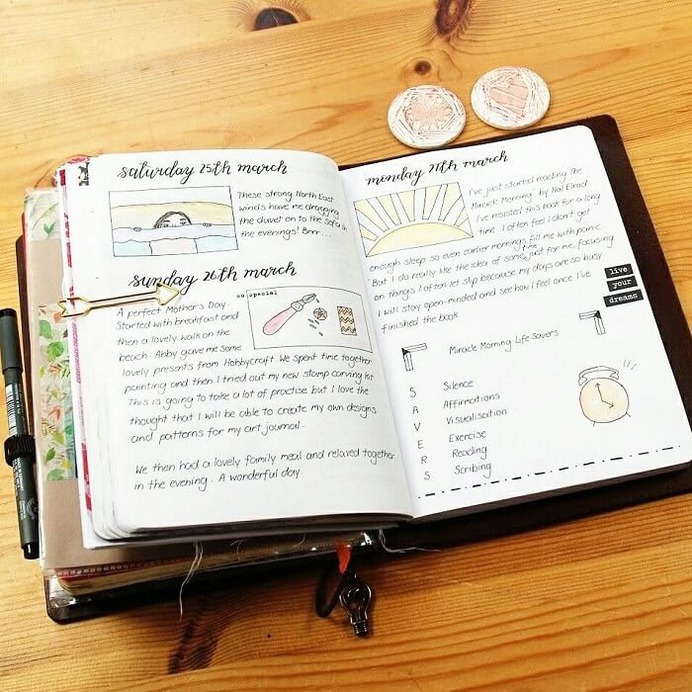 saturday 25th march
These strong North East
winds have me dragging
the duvet on to the sofa in
the evenings! Brrr...
sunday 26th march
so special
A perfect Mother's Day
Started with breakfast and
then a lovely walk on the
beach. Abby gave me some
lovely presents from Hobbycraft. We spent time together
painting and then I tried out my new stamp carving kit
This is going to take a lot of practise but I love the
thought that I will be able to create my own designs
and patterns for my art journal.
We then had a lovely family meal and relaxed together
in the evening. A wonderful day
monday 27th march
I've just started reading The
'Miracle Morning' by Hal Elrod
I've resisted this book for a long
time. I often feel I don't get
enough sleep so even earlier mornings fill me with panic
But I do really like the idea of some time just for me, focusing
on things I often let slip because my days are so busy
I will stay open-minded and see how I feel once I've
finished the book
live
your
dreams
Miracle Morning Life Savers
S Silence
A Affirmations
V Visualisation
E Exercise
R Reading
S Scribing